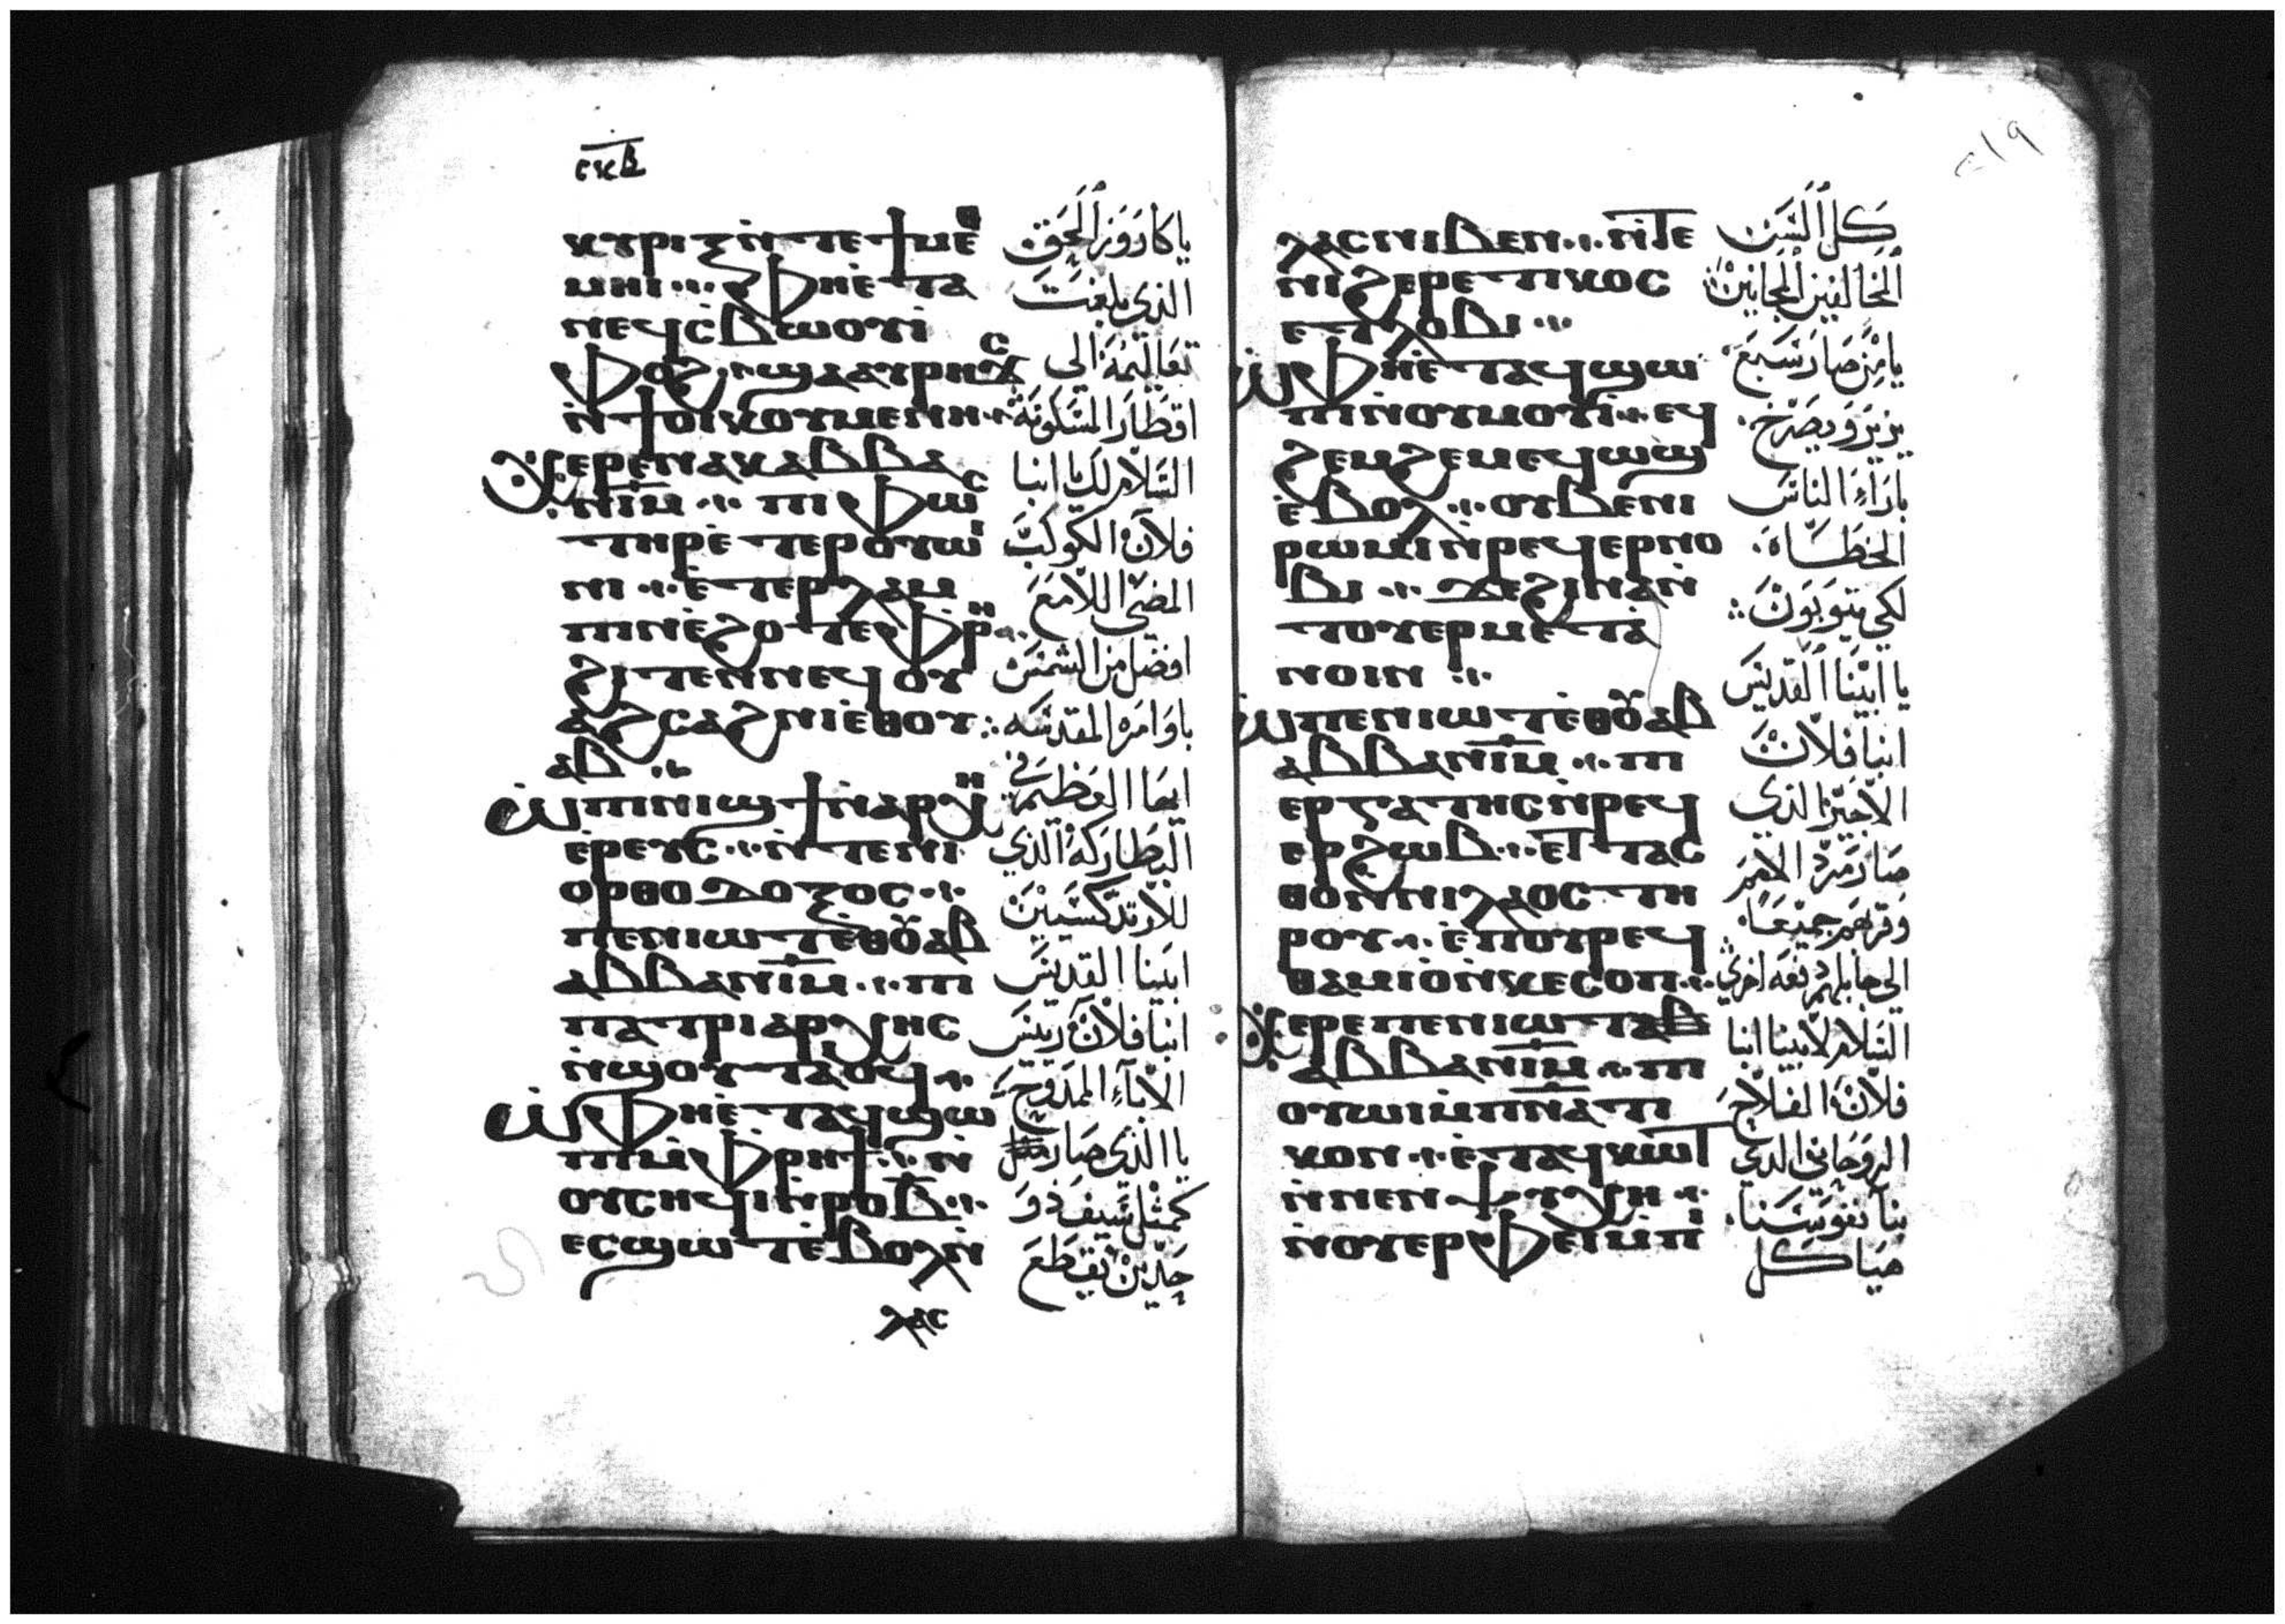 ⲥⲕⲃ
ⲕⲩⲣⲓⲝⲛ̀ⲧⲉϯⲙⲉⲑ
ⲙⲏⲓ ⲫⲏⲉ̀ⲧⲁ
ⲛⲉϥⲥ̀ⲃⲱⲟⲩⲓ̀
ⲫⲟϩ ϣⲁⲁⲩⲣⲏϫⲥ
ⲛ̀ϯⲟⲓⲕⲟⲩⲙⲉⲛⲏ
ⲭⲉⲣⲉⲛⲁⲕⲁⲃⲃⲁ
ⲛⲓⲙ ⲡⲓⲫⲱⲥ
ⲧⲏⲣⲉ̀ⲧⲉⲣⲟⲩⲱⲓ
ⲛⲓ ⲉ̀ⲧⲉⲣⲗⲁⲙ
ⲡⲓⲛⲉ̀ϩⲟⲧⲉⲫⲣⲏ
ϩⲓⲧⲉⲛⲛⲉϥⲟⲩ
ⲁϩⲥⲁϩⲛⲓⲉ̀ⲑⲟⲩ
ⲁⲃ
ⲱ̀ⲡⲓⲛⲓϣϯⲛ̀ⲁⲣⲭⲏ
ⲉ̀ⲣⲉⲩⲥ ⲛ̀ⲧⲉⲛⲓ
ⲟⲣⲑⲟⲇⲟⲝⲟⲥ
ⲡⲉⲛⲓⲱⲧⲉⲑⲟⲩⲁⲃ
ⲁⲃⲃⲁⲛⲓⲙ ⲡⲓ
ⲡⲁⲧⲣⲓⲁⲣⲭⲏⲥ
ⲛ̀ϣⲟⲩⲧⲁⲟϥ
ⲱ̀ⲫⲏⲉ̀ⲧⲁϥϣⲱ
ⲡⲓⲙ̀ⲫⲣⲏϯ ⲛ̀
ⲟⲩⲥⲏϥⲓⲛ̀ⲣⲟⲃ
ⲉⲥϣⲱⲧⲉ̀ⲃⲟⲗⲛ̀
ⲗⲁⲥ
يا كاروز الحق
الذي بلغت
تعاليمه الى
اقطار المسكونة
السلام لك يا انبا
فلان الكوكب
المضي اللامع
افضل من الشمس
باوامره المقدسه
ايها العظيم في
البطاركه الذي
للارتدكسيين
ابينا القديس
انبا فلان رييس
الابآء الممدوح
يا الذي صار
كمثل سيف ذو
حدين تقطع
٢١٩
ⲗⲁⲥⲛⲓⲃⲉⲛ ⲛ̀ⲧⲉ
ⲛⲓϩⲉⲣⲉⲧⲓⲕⲟⲥ
ⲉⲧⲗⲟⲃⲓ
ⲱ̀ⲫⲏⲉ̀ⲧⲁϥϣⲱ
ⲡⲓⲛ̀ⲟⲩⲙⲟⲩⲓ̀ ⲉϥ
ϩⲉⲙϩⲉⲙⲉϥⲱϣ
ⲉ̀ⲃⲟⲗ ⲟⲩⲃⲉⲛⲓ
ⲣⲱⲙⲓⲛ̀ⲣⲉϥⲉⲣⲛⲟ
ⲃⲓ ϩⲓⲛⲁⲛ̀
ⲧⲟⲩⲉⲣⲙⲉⲧⲁ
ⲛⲟⲓⲛ
ⲱ̀ⲡⲉⲛⲓⲱⲧⲉ̀ⲑⲟⲩⲁⲃ
ⲁⲃⲃⲁⲛⲓⲙ ⲡⲓ
ⲉⲣⲅⲁⲧⲏⲥⲛ̀ⲣⲉϥ
ⲉⲣϩⲱⲃ ⲉⲧⲧⲁⲥ
ⲑⲟⲛ̀ⲛⲓⲗⲁⲟⲥⲧⲏ
ⲣⲟⲩ ⲉ̀ⲡⲟⲩⲣⲉϥ
ⲑⲁⲙⲓⲟ̀ⲛ̀ⲕⲉⲥⲟⲡ
ⲭⲉⲣⲉⲡⲉⲛⲓⲱⲧ
ⲁⲃⲃⲁⲛⲓⲙ ⲡⲓ
ⲟⲩⲱⲓⲙ̀ⲡⲛⲁⲧⲓ
ⲕⲟⲛ ⲉ̀ⲧⲁϥⲕⲱⲧ
ⲛ̀ⲛⲉⲛⲯⲩⲭⲏ
ⲛ̀ⲟⲩⲉⲣⲫⲉⲓⲙ̀ⲡⲓ
كل السن
المخالفين المجانين
يا من صار سبع
يزير ويصرخ
بازآء الناس
الخطاه
لكي يتوبون
يا ابينا القديس
انبا فلان
الاجير الذي
صار مرد الامم
وقربهم جميعا
الى جابلهم دفعه اخرى
السلام لابينا انبا
فلان الفلاح
الروحاني الذي
بنا نفوسنا
هياكل